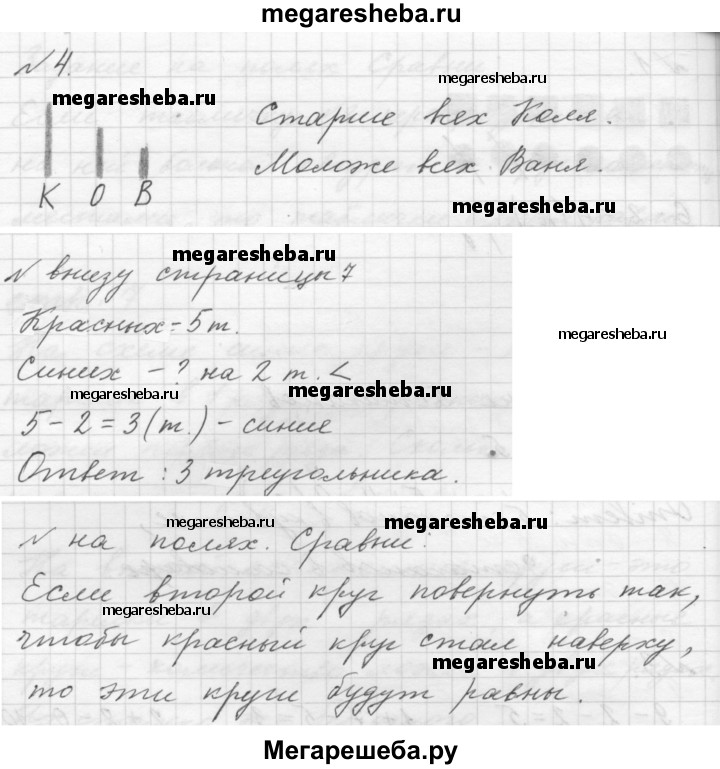 megaresheba.ru
№ 4.
megaresheba.ru
megaresheba.ru
Старше всех Коля.
К О В
Моложе всех Ваня.
megaresheba.ru
megaresheba.ru
№ внизу страницы 7
Красных = 5 т.
megaresheba.ru
Синих - ? на 2 т. <
megaresheba.ru
megaresheba.ru
5 - 2 = 3 (т.) - синие
Ответ : 3 треугольника.
megaresheba.ru
megaresheba.ru
№ на полях. Сравни:
Если второй круг повернуть так,
megaresheba.ru
чтобы красный круг стал наверху,
megaresheba.ru
то эти круги будут равны.
Мегарешеба.ру